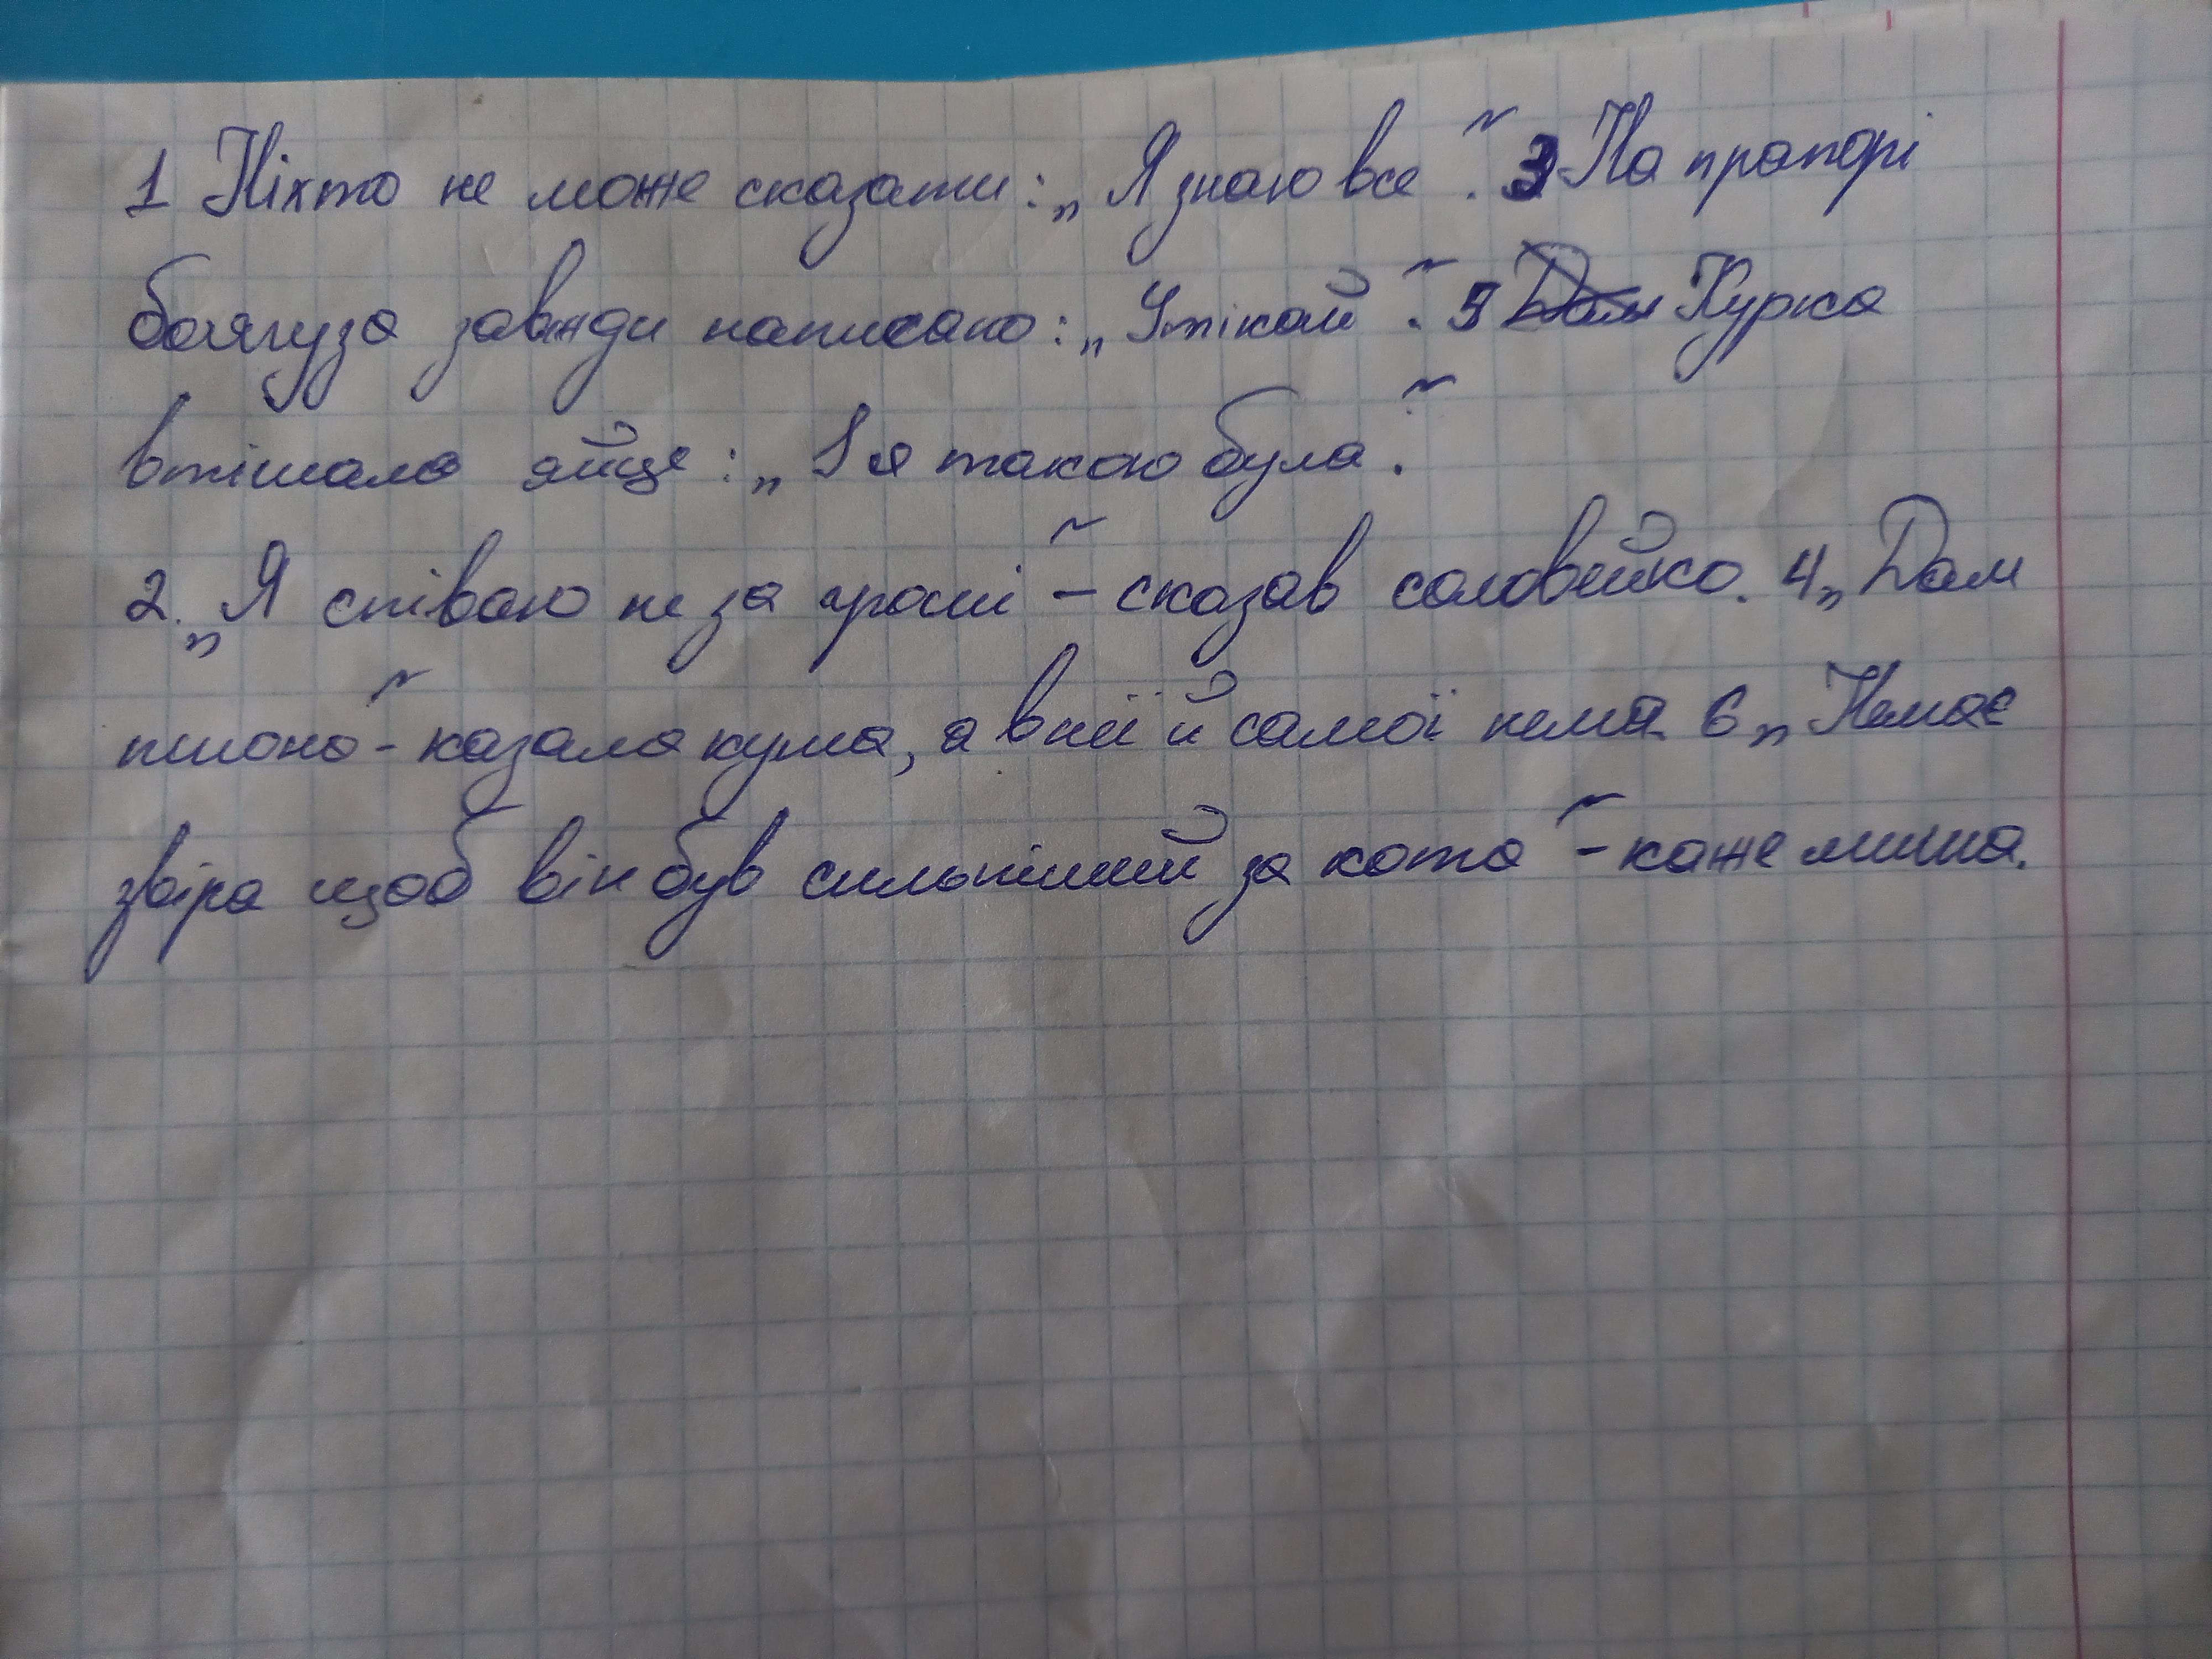 1 Ніхто не може сказати: „Я знаю все". 3 На прапорі
боягуза завжди написано: „Утікай". 5 Курка
втішала яйце: „І я такою була."
2. „Я співаю не за гроші" – сказав соловейко. 4 „Дам
пшоно" – казала кума, а в неї й самої нема. 6 „Немає
звіра щоб він був сильніший за кота" – каже миша.